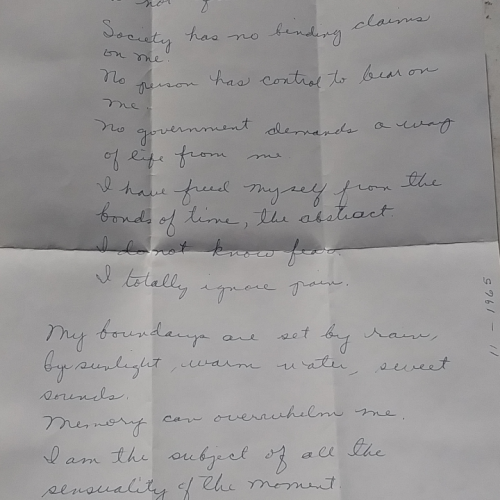 not
Society has no binding claims
on me.
No person has control to bear on
me.
No government demands a way
of life from me
I have freed myself from the
bonds of time, the abstract.
I do not know fear.
I totally ignore pain.
My boundarys are set by rain,
by sunlight, warm water, sweet
sounds.
Memory can overwhelm me.
I am the subject of all the
sensuality of the moment.
11-1965